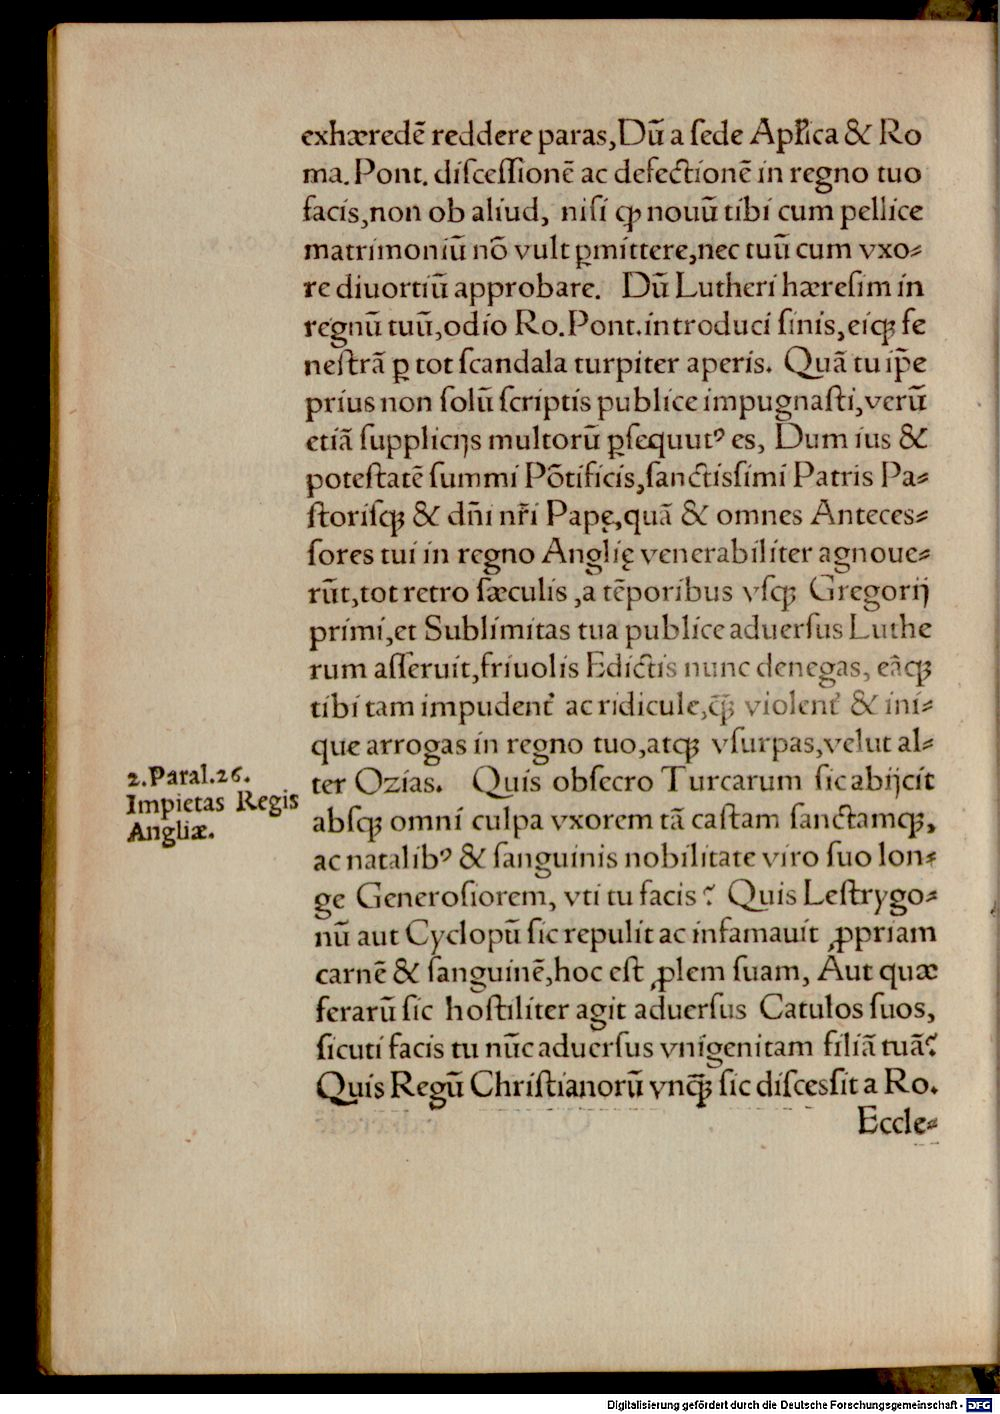 exhæredē reddere paras,Dū a ſede Apl̃ica & Ro
ma. Pont. diſceſſionē ac defectionē in regno tuo
facis,non ob aliud, niſi ꝙ nouū tibi cum pellice
matrimoniū nō vult ꝑmittere,nec tuū cum vxo⸗
re diuortiū approbare. Dū Lutheri hæreſim in
regnū tuū,odio Ro.Pont.introduci ſinis,eiꝗ ſe
neſtrā ꝑ tot ſcandala turpiter aperis. Quā tu ip̄e
prius non ſolū ſcriptis publice impugnaſti,verū
etiā ſupplicijs multorū ꝑſequutꝰ es, Dum ius &
poteſtatē ſummi Pōtificis,ſanctissimi Patris Pa⸗
ſtoriſqꝫ & dn̄i nr̄i Papę,quā & omnes Anteceſ⸗
ſores tui in regno Anglię venerabiliter agnoue⸗
rūt,tot retro ſæculis ,a tēporibus vſqꝫ Gregorij
primi,et Sublimitas tua publice aduerſus Luthe
rum aſſeruit,friuolis Edictis nunc denegas, eāqꝫ
tibi tam impudent̉ ac ridicule,q̄ꝫ violent̉ & ini⸗
que arrogas in regno tuo,atqꝫ vſurpas,velut al⸗
ter Ozias. Quis obſecro Turcarum ſic abijcit
abſqꝫ omni culpa vxorem tā caſtam ſanctamqꝫ,
ac natalibꝰ & ſanguinis nobilitate viro ſuo lon⸗
ge Generoſiorem, vti tu facis? Quis Leſtrygo⸗
nū aut Cyclopū ſic repulit ac infamauit ꝓpriam
carnē & ſanguinē,hoc eſt ꝓlem ſuam, Aut quæ
ferarū ſic hoſtiliter agit aduerſus Catulos ſuos,
ſicuti facis tu nūc aduerſus vnigenitam filiā tuā?
Quis Regū Chriſtianorū vnq̄ꝫ ſic diſcesſit a Ro.
Eccle⸗
2.Paral.26.
Impietas Regis
Angliæ.
Digitalisierung gefördert durch die Deutsche Forschungsgemeinschaft - DFG